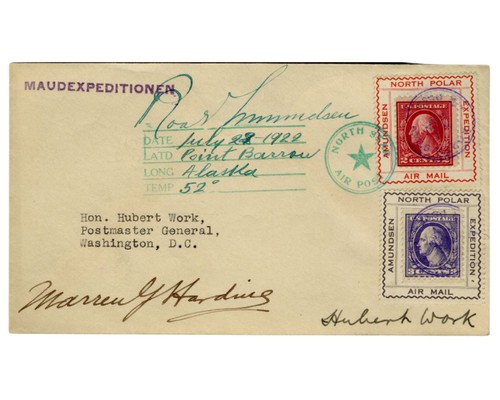 MAUDEXPEDITIONEN
Roald Amundsen
DATE July 28 1922
LATD Point Barrow
LONG Alaska
TEMP 52°
NORTH
AIR POST
Hon. Hubert Work,
Postmaster General,
Washington, D.C.
Warren G Harding
Hubert Work
NORTH POLAR
AMUNDSEN
EXPEDITION
AIR MAIL
U.S. POSTAGE
2 CENTS 2
NORTH POLAR
AMUNDSEN
EXPEDITION
AIR MAIL
U.S. POSTAGE
3 CENTS 3